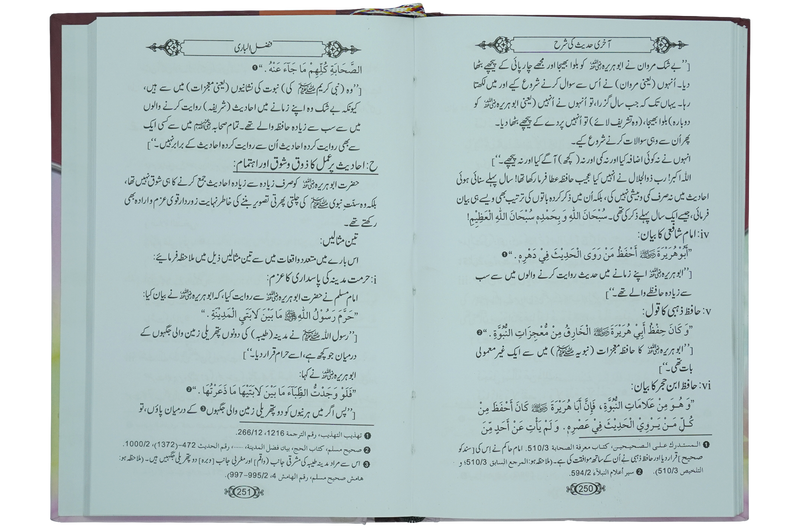 آخری حدیث کی شرح
["بے شک مروان نے ابوہریرہ رضی اللہ عنہ کو بلوا بھیجا اور مجھے چارپائی کے پیچھے بٹھا
دیا۔ اُنہوں (یعنی مروان) نے اُس سے سوال کرنے شروع کیے اور میں لکھتا
رہا۔ یہاں تک کہ جب سال گزرا، تو اُنہوں نے انہیں (یعنی ابوہریرہ رضی اللہ عنہ کو
دوبارہ) بلوا بھیجا، (وہ تشریف لائے) تو اُنہیں پردے کے پیچھے بٹھا دیا۔
پھر اُن سے وہی سوالات کرنے شروع کیے۔
انہوں نے نہ کوئی اضافہ کیا اور نہ کمی اور نہ (کچھ) آگے کیا اور نہ پیچھے۔"]
اللہ اکبر! رب ذوالجلال نے انہیں کیا عجیب حافظہ عطا فرما رکھا تھا! سال پہلے سنائی ہوئی
احادیث میں نہ صرف کمی وبیشی نہیں کی، بلکہ اُن میں ذکر کردہ باتوں کی ترتیب بھی ویسے ہی بیان
فرمائی، جیسے ایک سال پہلے ذکر کی تھی۔ سُبْحَانَ اللّٰهِ وَ بِحَمْدِهٖ سُبْحَانَ اللّٰهِ الْعَظِيْمِ!
iv: امام شافعی کا بیان:
"أَبُوْهُرَيْرَةَ أَحْفَظُ مَنْ رَوَى الْحَدِيْثَ فِيْ دَهْرِهٖ." ❶
["ابوہریرہ رضی اللہ عنہ اپنے زمانے میں حدیث روایت کرنے والوں میں سے سب
سے زیادہ حافظے والے تھے۔"]
v: حافظ ذہبی کا قول:
"وَ كَانَ حِفْظُ أَبِيْ هُرَيْرَةَ رضی اللہ عنہ الْخَارِقُ مِنْ مُعْجِزَاتِ النُّبُوَّةِ." ❷
["ابوہریرہ رضی اللہ عنہ کا حافظہ معجزات (نبویہ ﷺ) میں سے ایک غیر معمولی
بات تھی۔"]
vi: حافظ ابن حجر کا بیان:
"وَ هُوَ مِنْ عَلَامَاتِ النُّبُوَّةِ، فَإِنَّ أَبَا هُرَيْرَةَ رضی اللہ عنہ كَانَ أَحْفَظَ مِنْ
كُلِّ مَنْ يَرْوِي الْحَدِيْثَ فِيْ عَصْرِهٖ. وَ لَمْ يَأْتِ عَنْ أَحَدٍ مِّنَ
❶ المستدرك على الصحيحين، كتاب معرفة الصحابة، 510/3. امام حاکم نے اس کی [سند کو
صحیح] قرار دیا اور حافظ ذہبی نے اُن کے ساتھ موافقت کی ہے۔ (ملاحظہ ہو: المرجع السابق 510/3 و
التلخیص 510/3). ❷ سیر أعلام النبلاء 594/2.
250
فضل الباری
الصَّحَابَةِ كُلِّهِمْ مَا جَآءَ عَنْهُ." ❶
["وہ (نبی کریم ﷺ کی) نبوت کی نشانیوں (یعنی معجزات) میں سے ہیں،
کیونکہ بے شک وہ اپنے زمانہ میں احادیث (شریفہ) روایت کرنے والوں
میں سے سب سے زیادہ حافظہ والے تھے۔ تمام صحابہ میں سے کسی ایک
سے بھی روایت کردہ احادیث اُن سے روایت کردہ احادیث کے برابر نہیں۔"]
ح: احادیث پر عمل کا ذوق وشوق اور اہتمام:
حضرت ابوہریرہ رضی اللہ عنہ کو صرف زیادہ سے زیادہ احادیث جمع کرنے کا ہی شوق نہیں تھا،
بلکہ وہ سنتِ نبوی ﷺ کی چلتی پھرتی تصویر بننے کی خاطر نہایت زور دار قوی عزم و ارادہ بھی
رکھتے تھے۔
تین مثالیں:
اس بارے میں متعدد واقعات میں سے تین مثالیں ذیل میں ملاحظہ فرمائیے:
i: حرمت مدینہ کی پاسداری کا عزم:
امام مسلم نے حضرت ابوہریرہ رضی اللہ عنہ سے روایت کیا، کہ ابوہریرہ رضی اللہ عنہ نے بیان کیا:
"حَرَّمَ رَسُوْلُ اللّٰهِ ﷺ مَا بَيْنَ لَابَتَيِ الْمَدِيْنَةِ."
["رسول اللہ ﷺ نے مدینہ (طیبہ) کی دونوں پتھریلی زمین والی جگہوں کے
درمیان جو کچھ ہے، اسے حرام قرار دیا۔"]
ابوہریرہ رضی اللہ عنہ نے کہا:
"فَلَوْ وَجَدْتُّ الظِّبَآءَ مَا بَيْنَ لَابَتَيْهَا مَا ذَعَرْتُهَا." ❷
["پس اگر میں ہرنیوں کو دو پتھریلی زمین والی جگہوں ❸ کے درمیان پاؤں، تو
❶ تهذيب التهذيب، رقم الترجمة 1216، 266/12.
❷ صحیح مسلم، کتاب الحج، باب فضل المدینة، ....، رقم الحدیث 472-(1372)، 1000/2.
❸ اس سے مراد مدینہ طیبہ کی مشرقی جانب (واقم) اور مغربی جانب (وبرہ) دو پتھریلی جگہیں ہیں۔ (ملاحظہ ہو:
هامش صحيح مسلم، رقم الهامش 4، 995/2-997).
251